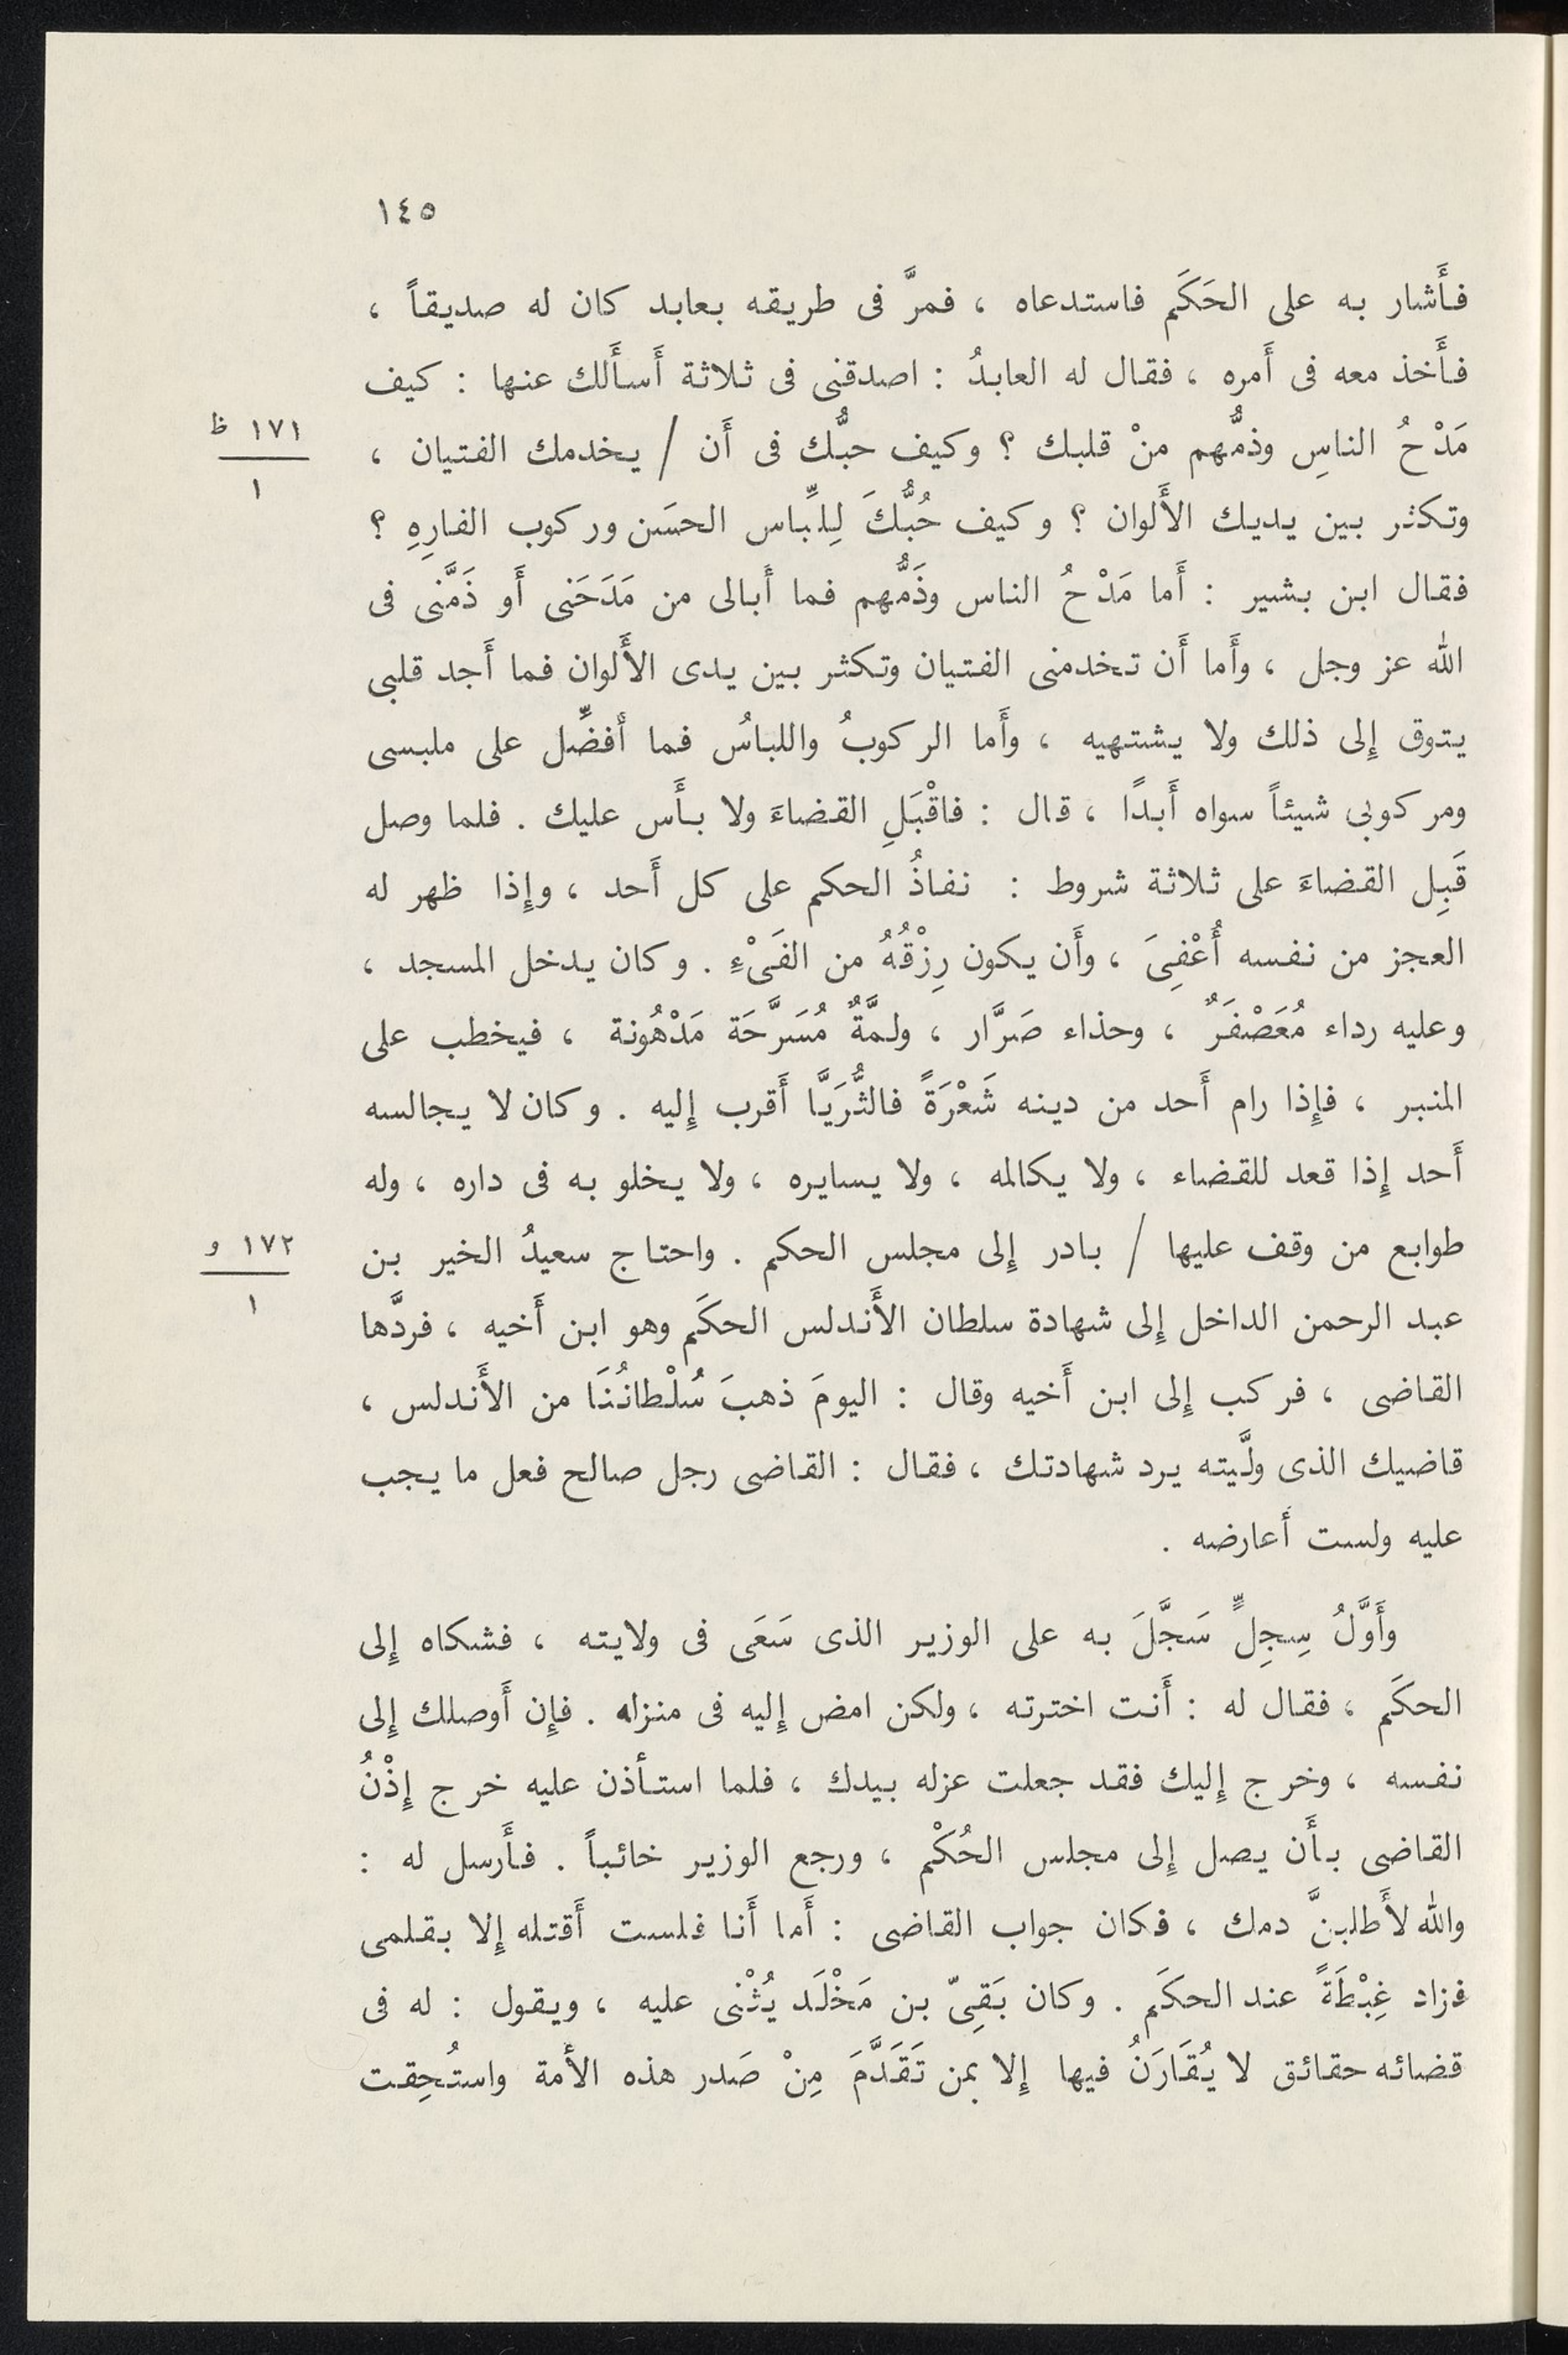 ١٤٥
فأَشار به على الحَكَم فاستدعاه ، فمرَّ فى طريقه بعابد كان له صديقاً ،
فأَخذ معه فى أَمره ، فقال له العابدُ : اصدقنى فى ثلاثة أَسأَلك عنها : كيف
مَدْحُ الناسِ وذمُّهم منْ قلبك ؟ وكيف حبُّك فى أَن / يخدمك الفتيان ،
١٧١ ظ
١
وتكثر بين يديك الأَلوان ؟ وكيف حُبُّكَ لِلِّباس الحسَن وركوب الفارِهِ ؟
فقال ابن بشير : أَما مَدْحُ الناس وذَمُّهم فما أَبالى من مَدَحَنى أَو ذَمَّنى فى
الله عز وجل ، وأَما أَن تخدمنى الفتيان وتكثر بين يدى الأَلوان فما أَجد قلبى
يتوق إِلى ذلك ولا يشتهيه ، وأَما الركوبُ واللباسُ فما أُفضِّل على ملبسى
ومركوبى شيئاً سواه أَبدًا ، قال : فاقْبَلِ القضاءَ ولا بأَس عليك . فلما وصل
قَبِل القضاءَ على ثلاثة شروط : نفاذُ الحكم على كل أَحد ، وإِذا ظهر له
العجز من نفسه أُعْفِىَ ، وأَن يكون رِزْقُهُ من الفَىْءِ . وكان يدخل المسجد ،
وعليه رداء مُعَصْفَرٌ ، وحذاء صَرَّار ، ولمَّةٌ مُسَرَّحَة مَدْهُونة ، فيخطب على
المنبر ، فإِذا رام أَحد من دينه شَعْرَةً فالثُّرَيَّا أَقرب إِليه . وكان لا يجالسه
أَحد إِذا قعد للقضاء ، ولا يكالمه ، ولا يسايره ، ولا يخلو به فى داره ، وله
طوابع من وقف عليها / بادر إِلى مجلس الحكم . واحتاج سعيدُ الخير بن
١٧٢ و
١
عبد الرحمن الداخل إِلى شهادة سلطان الأَندلس الحكَم وهو ابن أَخيه ، فردَّها
القاضى ، فركب إِلى ابن أَخيه وقال : اليومَ ذهبَ سُلْطانُنَا من الأَندلس ،
قاضيك الذى ولَّيته يرد شهادتك ، فقال : القاضى رجل صالح فعل ما يجب
عليه ولست أعارضه .
وأَوَّلُ سِجِلٍّ سَجَّلَ به على الوزير الذى سَعَى فى ولايته ، فشكاه إِلى
الحكَم ، فقال له : أَنت اخترته ، ولكن امض إِليه فى منزله . فإِن أَوصلك إِلى
نفسه ، وخرج إِليك فقد جعلت عزله بيدك ، فلما استأذن عليه خرج إِذْنُ
القاضى بأَن يصل إِلى مجلس الحُكْم ، ورجع الوزير خائباً . فأَرسل له :
والله لأَطلبنَّ دمك ، فكان جواب القاضى : أَما أَنا فلست أَقتله إِلا بقلمى
فزاد غِبْطَةً عند الحكَم . وكان بَقِىّ بن مَخْلَد يُثْنى عليه ، ويقول : له فى
قضائه حقائق لا يُقَارَنُ فيها إِلا بمن تَقَدَّمَ مِنْ صَدر هذه الأمة واستُحِقت